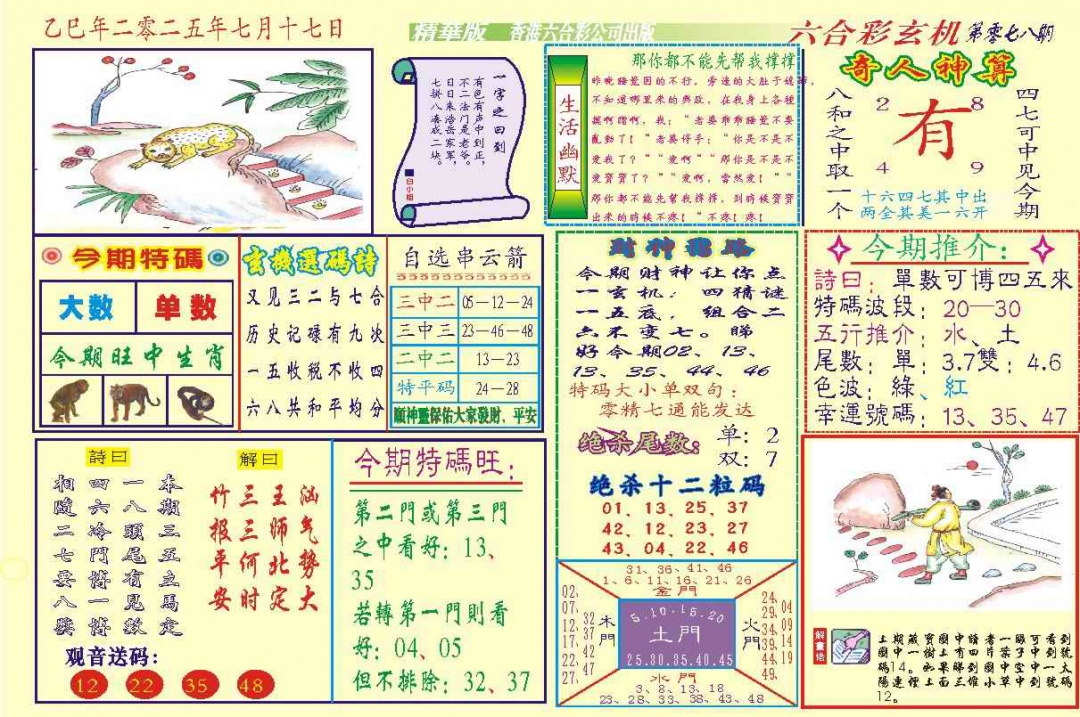 乙巳年二零二五年七月十七日
精華版 香港六合彩公司出版
六合彩玄机 第零七八期
一字之曰到
有色有声中到正，
不二法门是老爷。
日日来浩岳家军，
七骈八凑成二块。
白小姐
生活幽默
那你都不能先帮我撑撑
昨晚睡觉困的不行，旁边的大肚子媳妇，
不知道哪里来的兴致，在我身上各种
摸啊蹭啊，我："老婆乖乖睡觉不要
乱动了！"老婆停手："你是不是不
爱我了？""爱啊""那你是不是不
爱宝宝了？""爱啊，当然爱！""
那你都不能先帮我撑撑，到时候宝宝
出来的时候不疼！"不疼！疼！
奇人神算
八和之中取一个
2 8
有
4 9
四七可中见今期
十六四七其中出
两全其美一六开
今期特碼
大数 单数
今期旺中生肖
玄機選碼詩
又见三二与七合
历史记碌有九次
一五收税不收四
六八共和平均分
自选串云箭
三中二 05—12—24
三中三 23—46—48
二中二 13—23
特平码 24—28
願神靈保佑大家發財、平安
财神指路
今期财神让你点
一玄机：四猜谜
一五底，组合二
六不变七。睇
好今期02、13、
13、35、44、46
特码大小单双句：
零精七通能发达
绝杀尾数：
单：2
双：7
绝杀十二粒码
01、13、25、37
42、12、23、27
43、04、22、46
今期推介：
詩曰：單數可博四五來
特碼波段：20—30
五行推介：水、土
尾數：單：3.7雙：4.6
色波：綠、紅
幸運號碼：13、35、47
詩曰
本期三五立馬定
一八頭尾有見數
四六冷門博一博
相隨二七要八獎
解曰
汹气势大
王师北定
三三何时
竹报平安
观音送码：
12 22 35 48
今期特碼旺：
第二門或第三門
之中看好：13、
35
若轉第一門則看
好：04、05
但不排除：32、37
31、36、41、46
1、6、11、16、21、26
金門
02、07、12、17、22、27、
32、37、42、47
木門
5.10—15.20
土門
25.30.35.40.45
火門
24、29、34、39、44、49、
04、09、14、19
水門
3、8、13、18
23、28、33、38、43、48
解畫佬
上期藏寶圖中請者一睇可看到
圖中一樹上有四片葉子中到號
碼14。如果睇到圖中空中一太
陽連裡土面三堆小草中到號碼
12。